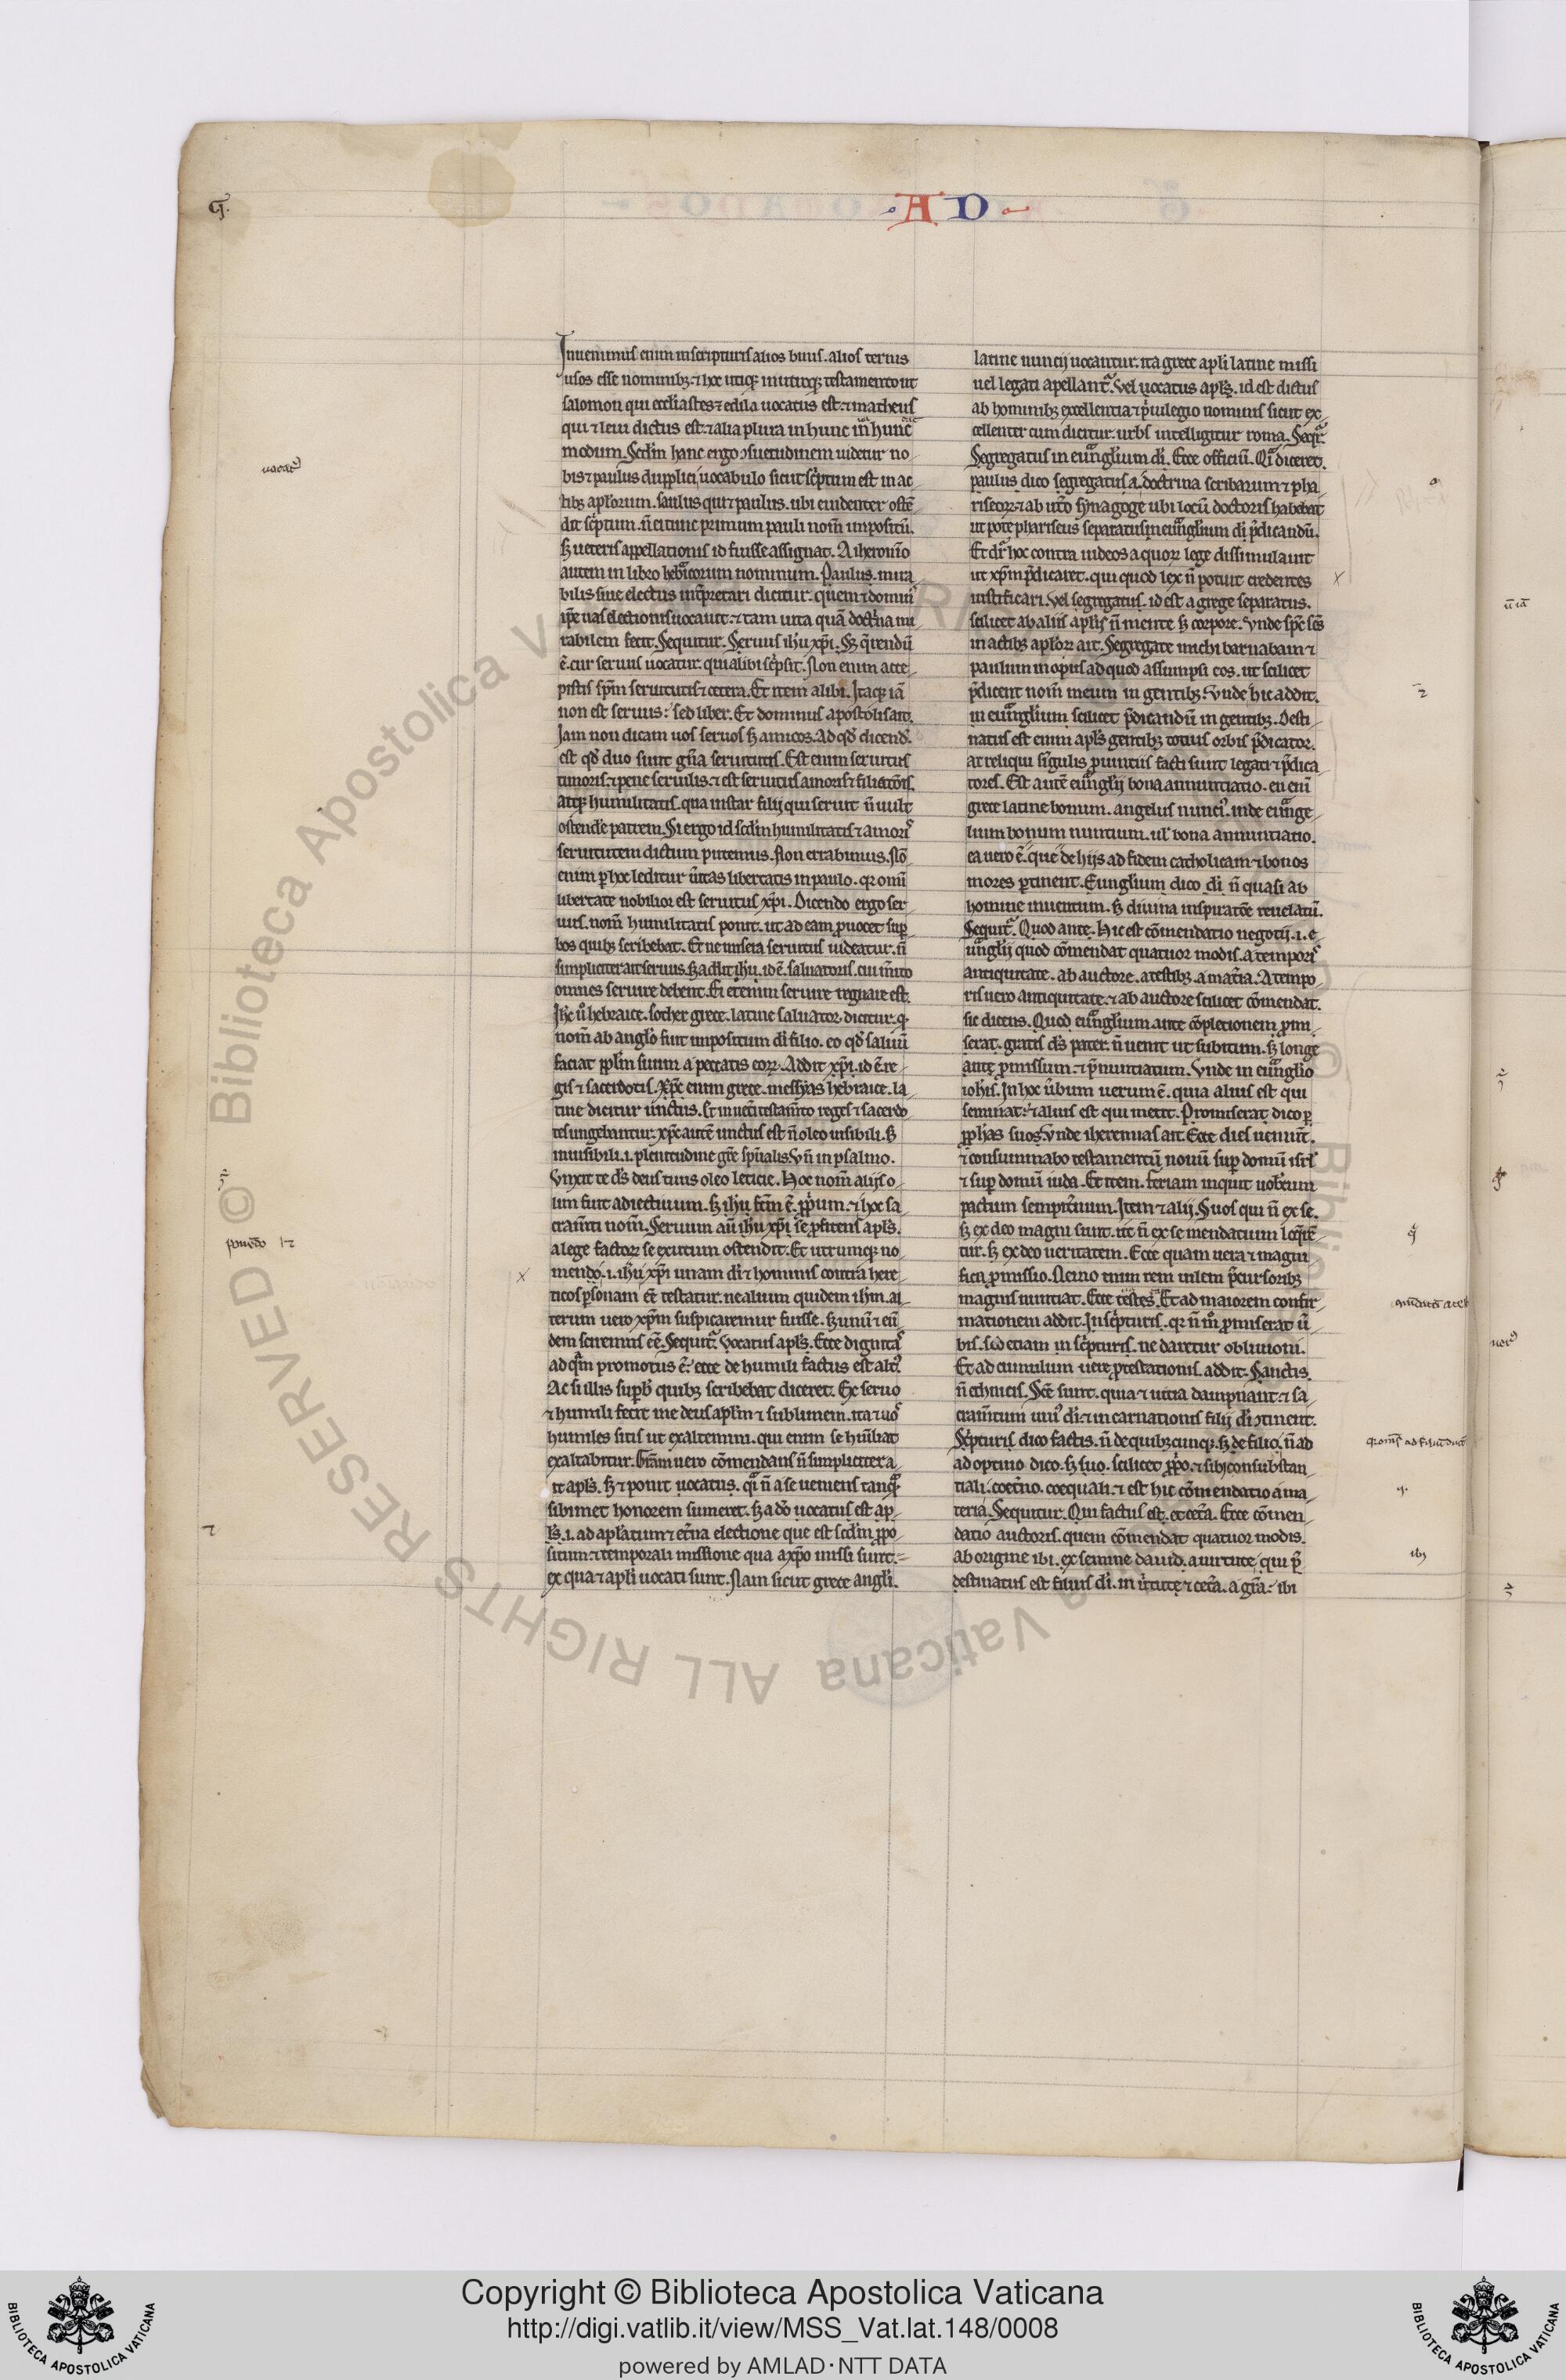 · A D ·
Inuenimus enim in scripturis alios binis. alios ternis
usos esse nominibꝫ. ⁊ hoc utiqꝫ in utroqꝫ testamento ut
salomon qui eccl̄iastes ⁊ edida uocatus est. ⁊ matheus
qui ⁊ leui dictus est. ⁊ alia plura in hunc
modum. Scd̄m hanc ergo ↄsuetudinem uidetur no-
bis ⁊ paulus dupplici uocabulo sicut sc̄ptum est in ac-
tibꝫ apl̄orum. saulus qui ⁊ paulus. ubi euidenter ostē-
dit sc̄ptum. n̄ ei tunc primum pauli nom̄ impositū.
sꝫ ueteris appellationis id fuisse assignat. A iheronīo
autem in libro heb̄icorum nominum. Paulus. mira-
bilis siue electus int̄pretari dicitur. quem ⁊ domin'
ip̄e uas electionis uocauit. ⁊ tam uita quā doctr̄na mi-
rabilem fecit. Sequitur. Seruus ih̄u xp̄i. Sꝫ q̄rendū
ē. cur seruus uocatur. qui alibi sc̄psit. Non enim acce-
pistis sp̄m seruitutis ⁊ cetera. Et item alibi. Itaqꝫ iā
non est seruus: sed liber. Et dominus apostolis ait.
Iam non dicam uos seruos sꝫ amicos. Ad qd̄ dicend̄.
est qd̄ duo sunt gn̄a seruitutis. Est enim seruitus
timoris. ⁊ pene seruilis. ⁊ est seruitus amoris ⁊ filiatōis.
atqꝫ humilitatis. qua instar filij qui seruit n̄ uult
ostend̄e patrem. Si ergo id scd̄m humilitatis ⁊ amoris
seruitutem dictum putemus. Non errabimus. Nō
enim ꝑ hoc leditur ūitas libertatis in paulo. qꝛ omī
libertate nobilior est seruitus xp̄i. Dicendo ergo ser-
uus. nom̄ humilitatis ponit. ut ad eam ꝓuocet suꝑ-
bos quibꝫ scribebat. Et ne misera seruitus uideatur. n̄
simpliciter ait seruus. sꝫ addit ih̄u. id ē. saluatoris. cui m̄ito
omnes seruire debent. Ei etenim seruire regnare est.
Ih̄c ū hebraice. sother grece. latine saluator dicitur. qd̄
nom̄ ab angl̄o fuit impositum dī filio. eo qd̄ saluū
faciat ppl̄m suum a peccatis eoꝝ. Addit xp̄i. id ē. re-
gis ⁊ sacerdotis. Xp̄c enim grece. messyas hebraice. la-
tine dicitur unctus. Et in ueti testam̄to reges ⁊ sacerdo-
tes ungebantur. xp̄c autē unctus est n̄ oleo uisibili. sꝫ
inuisibili. i. plenitudine gr̄e sp̄ualis. Vn̄ in psalmo.
Vnxit te dn̄s deus tuus oleo leticie. Hoc nom̄ alijs o-
lim fuit adiectiuum. sꝫ ih̄u fc̄m ē. ꝓp̄um. ⁊ hoc sa-
cram̄ti nom̄. Seruum aūt ih̄u xp̄i se ꝓfitens apl̄s.
a lege factoꝝ se exutum ostendit. Et utrumqꝫ no-
mendo. i. ih̄u xp̄i unam dī ⁊ hominis contra here-
ticos ꝑsonam eē testatur. ne alium quidem ih̄m. al-
terum uero xp̄m suspicaremur fuisse. sꝫ unū ⁊ eū-
dem sciremus eē. Sequit̄. Vocatus apl̄s. Ecce dignitas
ad qm̄ promotus ē. ecce de humili factus est altꝰ.
Ac si illis suꝑb' quibꝫ scribebat diceret. Ex seruo
⁊ humili fecit me deus apl̄m ⁊ sublimem. ita ⁊ uos
humiles sitis ut exaltemini. qui enim se hūiliat
exaltabitur. Gr̄am uero cōmendans n̄ simpliciter a-
it apl̄s. sꝫ ⁊ ponit uocatus. qa n̄ a se ueniens tanqͣ
sibimet honorem sumeret. sꝫ a dō uocatus est ap-
l̄s. i. ad apl̄atum ⁊ et̄na electione que est scd̄m ꝓpo-
situm. ⁊ temporali missione qua a xp̄o missi sunt.
ex qua ⁊ apl̄i uocati sunt. Nam sicut grece angl̄i.
latine nuncij uocantur. ita grece apl̄i latine missi
uel legati apellant̄. Vel uocatus apl̄s. id est dictus
ab hominibꝫ excellentia ⁊ p̄uilegio nominis sicut ex-
cellenter cum dicitur urbs intelligitur roma. Seqr̄.
Segregatus in eu̅ngl̄ium dī. Ecce officiū. Qͣ diceret.
paulus dico segregatus a doctrina scribarum ⁊ pha-
riseoꝝ. ⁊ ab utc̄o synagoge ubi locū doctoris habebat
ut pote phariseus separatus in eu̅ngl̄ium dī p̄dicandū.
Et dr̄ hoc contra iudeos a quoꝝ lege dissimulauit
ut xp̄m p̄dicaret. qui quod lex n̄ potuit credentes
iustificari. Vel segregatus. id est a grege separatus.
scilicet ab aliis apl̄is n̄ mente sꝫ corpore. Vnde sp̄c sc̄s
in actibꝫ apl̄oꝝ ait. Segregate michi barnabam ⁊
paulum in opus ad quod assumpsi eos. ut scilicet
p̄dicent nom̄ meum in gentibꝫ. Vnde hic addit.
in eu̅ngl̄ium scilicet p̄dicandū in gentibꝫ. Desti-
natus est enim apl̄s gentibꝫ totius orbis p̄dicator.
at reliqui singulis ꝓuinciis facti sunt legati ⁊ p̄dica-
tores. Est autē eu̅ngl̄ij bona annuntiatio. eu enī
grece latine bonum. angelus nunciꝰ. inde eu̅nge-
lium bonum nuntium. ul̄ bona annuntiatio.
ea uero ē. que de hijs ad fidem catholicam ⁊ bonos
mores ꝑtinent. Eungl̄ium dico dī n̄ quasi ab
homine inuentum. sꝫ diuina inspiratōe reuelatū.
Sequit̄. Quod ante. Hic est cōmendatio negotij. i. e-
u̅ngl̄ij quod cōmendat quatuor modis. a temporis
antiquitate. ab auctore. a testibꝫ. a mat̄ia. A tempo-
ris uero antiquitate. ⁊ ab auctore scilicet cōmendat.
sic dicens. Quod eu̅ngl̄ium ante cōpletionem ꝓmi-
serat. gratis dn̄s pater. n̄ uenit ut subitum. sꝫ longe
ante ꝓmissum. ⁊ p̄nuntiatum. Vnde in eu̅ngl̄io
ioh̄is. In hoc ūbum uerum ē. quia alius est qui
seminat. ⁊ alius est qui metit. Promiserat dico ꝑ
ꝓph̄as suos. Vnde iheremias ait. Ecce dies ueniūt.
⁊ consummabo testamentū nouū suꝑ domū isrl̄
⁊ suꝑ domū iuda. Et item. feriam inquit uobiscum
pactum sempit̄num. Item ⁊ alij. Suos qui n̄ ex se.
sꝫ ex deo magni sunt. ut n̄ ex se mendatium loq̄rē-
tur. sꝫ ex deo ueritatem. Ecce quam uera ⁊ magni-
fica ꝓmissio. Nemo enim rem uilem p̄cursoribꝫ
magnis nuntiat. Ecce testes. Et ad maiorem confir-
mationem addit. In sc̄pturis. qꝛ n̄ mō ꝓmiserat ū-
bis. sed etiam in sc̄pturis. ne daretur obliuioni.
Et ad cumulum uere ꝓtestationis addit. Sanctis.
n̄ ethnicis. Sc̄e sunt. quia ⁊ uitia dampnant. ⁊ sa-
cram̄tum uniꝰ dī. ⁊ incarnationis filij dī ↄtinent.
Sc̄pturis dico factis. n̄ de quibꝫcunqꝫ. sꝫ de filio. n̄ ad
ad optiuo dico. sꝫ suo. scilicet ꝓp̄o. ⁊ sibi consubstan-
tiali. coet̄no. coequali. ⁊ est hic cōmendatio a ma-
teria. Sequitur. Qui factus est. et cet̄a. Ecce cōmen-
datio auctoris. quem cōmendat quatuor modis.
ab origine ibi. ex semine dauid. a uirtute qui p̄-
destinatus est filius dī. in ūtute ⁊ cet̄a. a gr̄a. ibi
Copyright © Biblioteca Apostolica Vaticana
http://digi.vatlib.it/view/MSS_Vat.lat.148/0008
powered by AMLAD·NTT DATA
BIBLIOTECA APOSTOLICA VATICANA
BIBLIOTECA APOSTOLICA VATICANA
Biblioteca Apostolica Vaticana ALL RIGHTS RESERVED ©